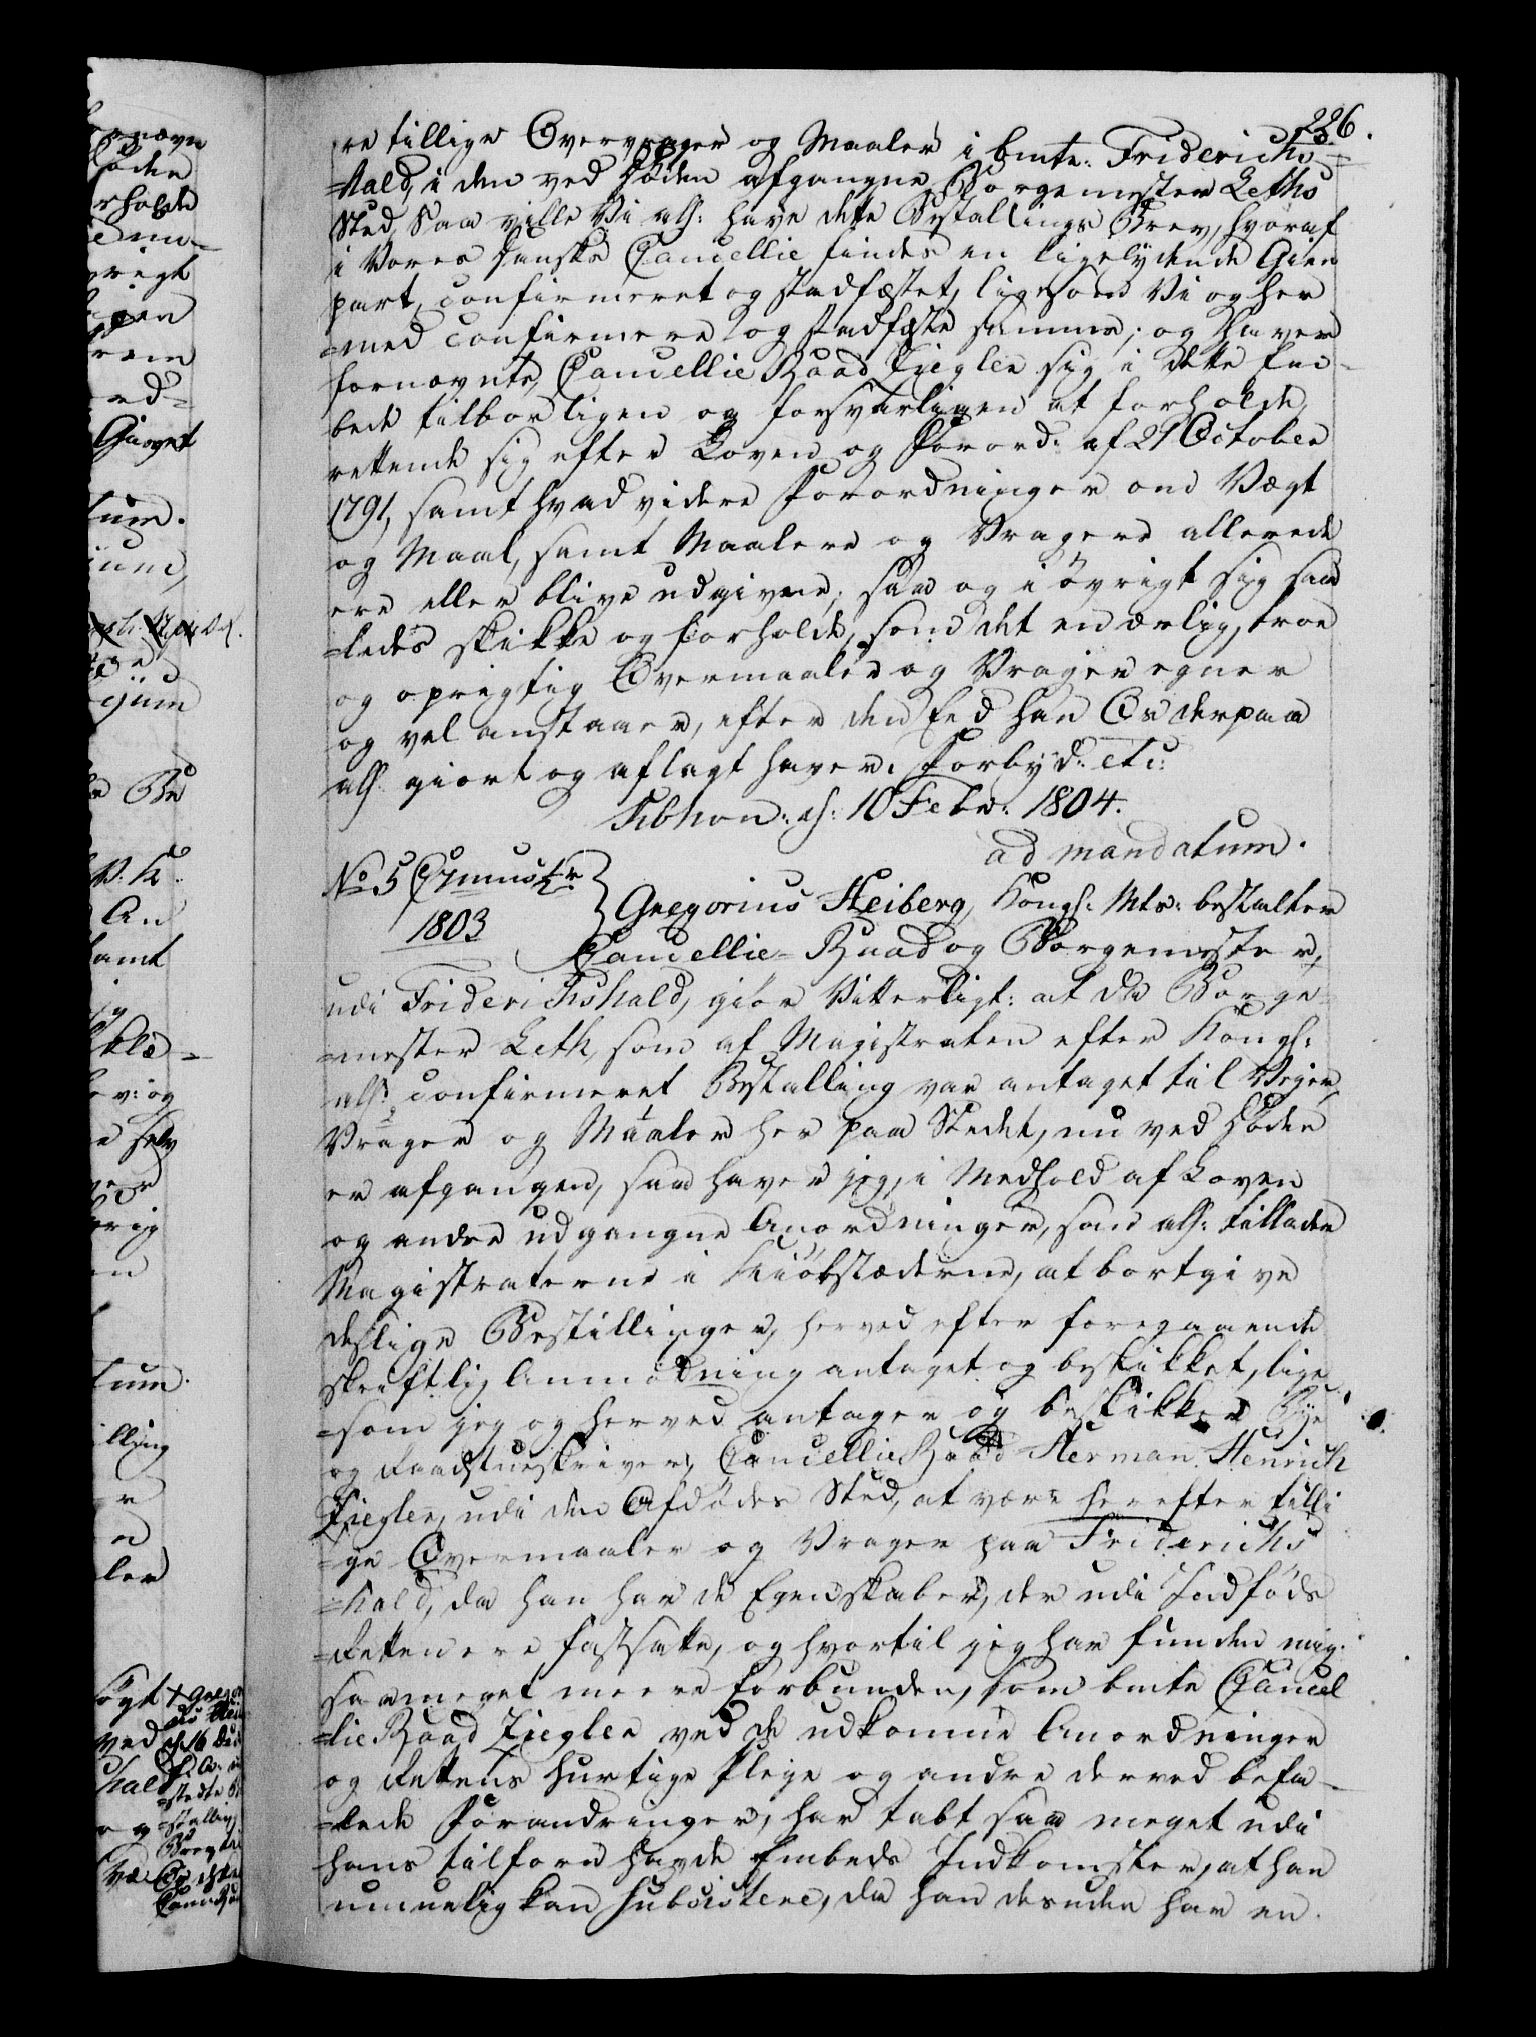 226.
re tillige Overvrager og Maaler i bmte: Friderichs-
=hald, i den ved Døden afgangne Borgemester Leths
Sted, Saa ville Vi all: have dette Bestallings Brev, hvoraf
i Vores danske Cancellie findes en ligelydende Gien
part, confirmeret og stadfæstet, ligesom Vi og her
=med confirmere og stadfæste samme; og haver
fornævnte Cancellie Raad Ziegler sig i dette Em-
bede tilbørligen og forsvarligen at forholde,
rettende sig efter Loven og Forord: af 21 October
1791, samt hvad videre Forordninger om Vægt
og Maal, samt Maalere og Vragere allerede
ere eller blive udgivne; saa og i øvrigt sig saa
=ledes skikke og forholde, som det en ærlig, troe
og oprigtig Overmaaler og Vrager egner
og vel anstaaer, efter den Eed han Os derpaa
all: giort og aflagt haver. Forbyd: etc:
Kbhvn: d: 10 Febr: 1804.
ad mandatum.
No 5 Chmustr
1803
Gregorius Heiberg, Kongl: Mts: bestalter
Cancellie-Raad og Borgemester,
udi Friderichshald, giør Vitterligt: at da Borge
=mester Leth, som af Magistraten efter Kongl:
all: confirmeret Bestalling var antaget til Vejer,
Vrager og Maaler her paa Stedet, nu ved Døden
er afgangen, saa haver jeg, i Medhold af Loven
og andre udgangne Anordninger, som all: tillade
Magistraterne i Kiøbstæderne, at bortgive
deslige Bestillinger, herved efter foregaaende
skriftlig Anmodning antaget og beskikket, lige
=som jeg og herved antager og beskikker Bye
og Raadstueskriver, Cancellie Raad Herman Henrich
Ziegler, udi den Afdødes Sted, at være herefter tilli
=ge Overmaaler og Vrager paa Friderichs
=hald, da han har de Egenskaber, der udi Indføds
=Retten ere fastsatte, og hvortil jeg har funden mig
saa meget meere forbunden, som bmte Cancel
=lie Raad Ziegler ved de udkomne Anordninger
og Rettens hurtige Pleje og andre derved befa-
=lede Forandringer, har tabt saa meget udi
hans tilforn havde Embeds Indkomster, at han
umuelig kan subsistere, da han desuden har en